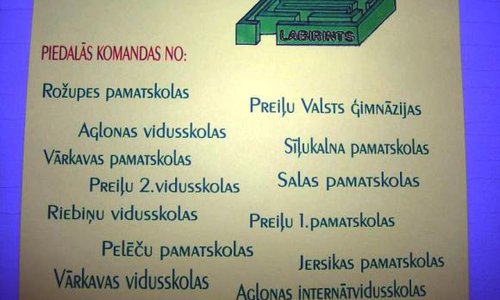 LABIRINTS
PIEDALĀS KOMANDAS NO:
Rožupes pamatskolas
Preiļu Valsts ģimnāzijas
Aglonas vidusskolas
Sīļukalna pamatskolas
Vārkavas pamatskolas
Preiļu 2.vidusskolas
Salas pamatskolas
Riebiņu vidusskolas
Preiļu 1.pamatskolas
Pelēču pamatskolas
Jersikas pamatskolas
Vārkavas vidusskolas
Aglonas internātvidusskolas